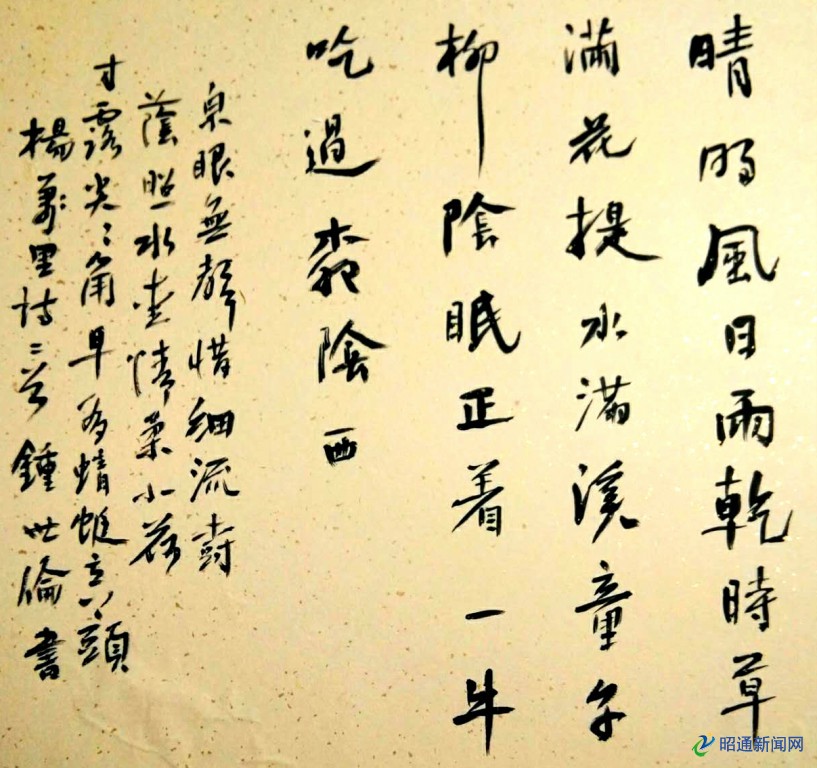 晴明風日雨乾時草
滿花提水滿溪童子
柳陰眠正着一牛
吃過柳陰西
泉眼無聲惜細流樹
蔭照水愛情柔小荷
才露尖々角早有蜻蜓立上頭
楊萬里詩二首鍾世倫書
昭通新闻网